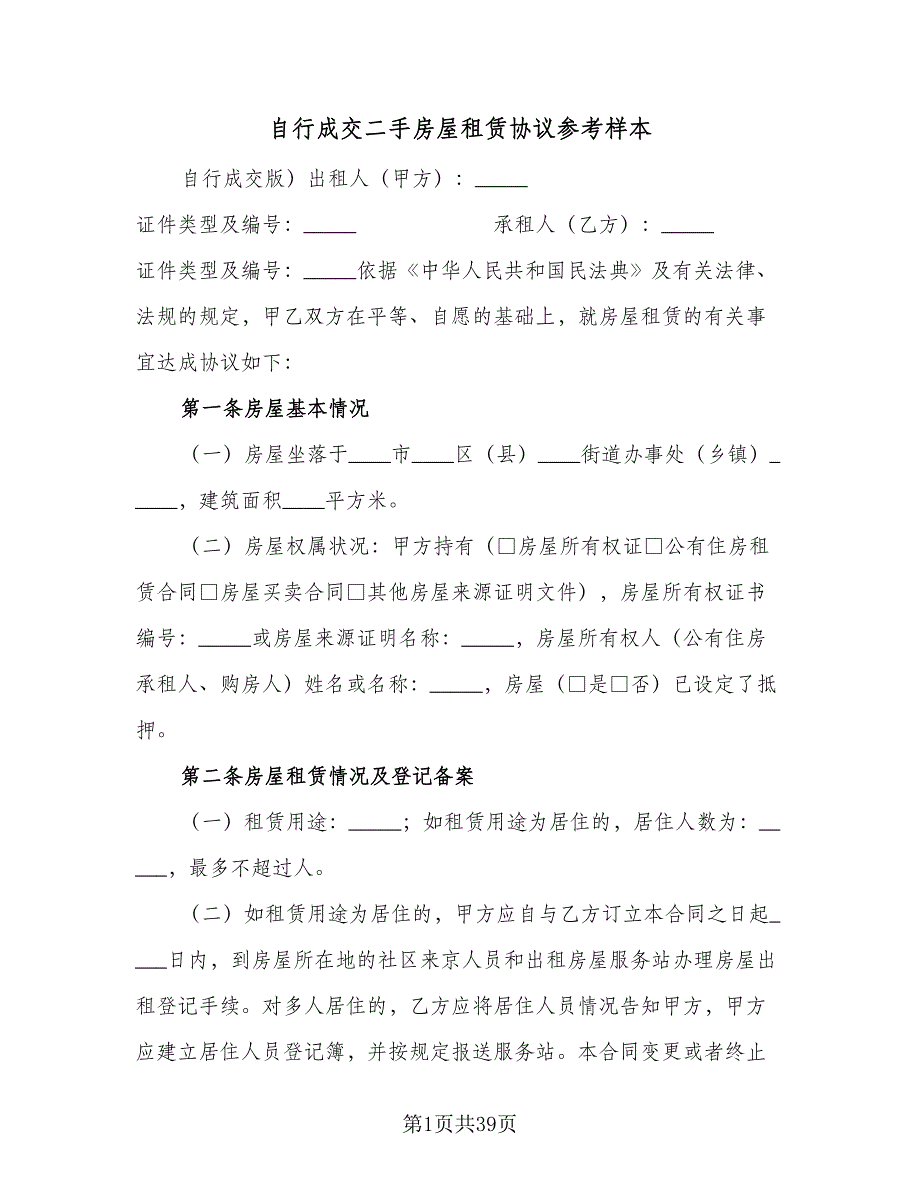 自行成交二手房屋租赁协议参考样本
自行成交版）出租人（甲方）：_____
证件类型及编号：_____ 承租人（乙方）：_____
证件类型及编号：_____依据《中华人民共和国民法典》及有关法律、
法规的规定，甲乙双方在平等、自愿的基础上，就房屋租赁的有关事
宜达成协议如下：
第一条房屋基本情况
（一）房屋坐落于____市____区（县）____街道办事处（乡镇）_
____，建筑面积____平方米。
（二）房屋权属状况：甲方持有（□房屋所有权证□公有住房租
赁合同□房屋买卖合同□其他房屋来源证明文件），房屋所有权证书
编号：_____或房屋来源证明名称：_____，房屋所有权人（公有住房
承租人、购房人）姓名或名称：_____，房屋（□是□否）已设定了抵
押。
第二条房屋租赁情况及登记备案
（一）租赁用途：_____；如租赁用途为居住的，居住人数为：__
___，最多不超过人。
（二）如租赁用途为居住的，甲方应自与乙方订立本合同之日起_
___日内，到房屋所在地的社区来京人员和出租房屋服务站办理房屋出
租登记手续。对多人居住的，乙方应将居住人员情况告知甲方，甲方
应建立居住人员登记簿，并按规定报送服务站。本合同变更或者终止
第1页共39页